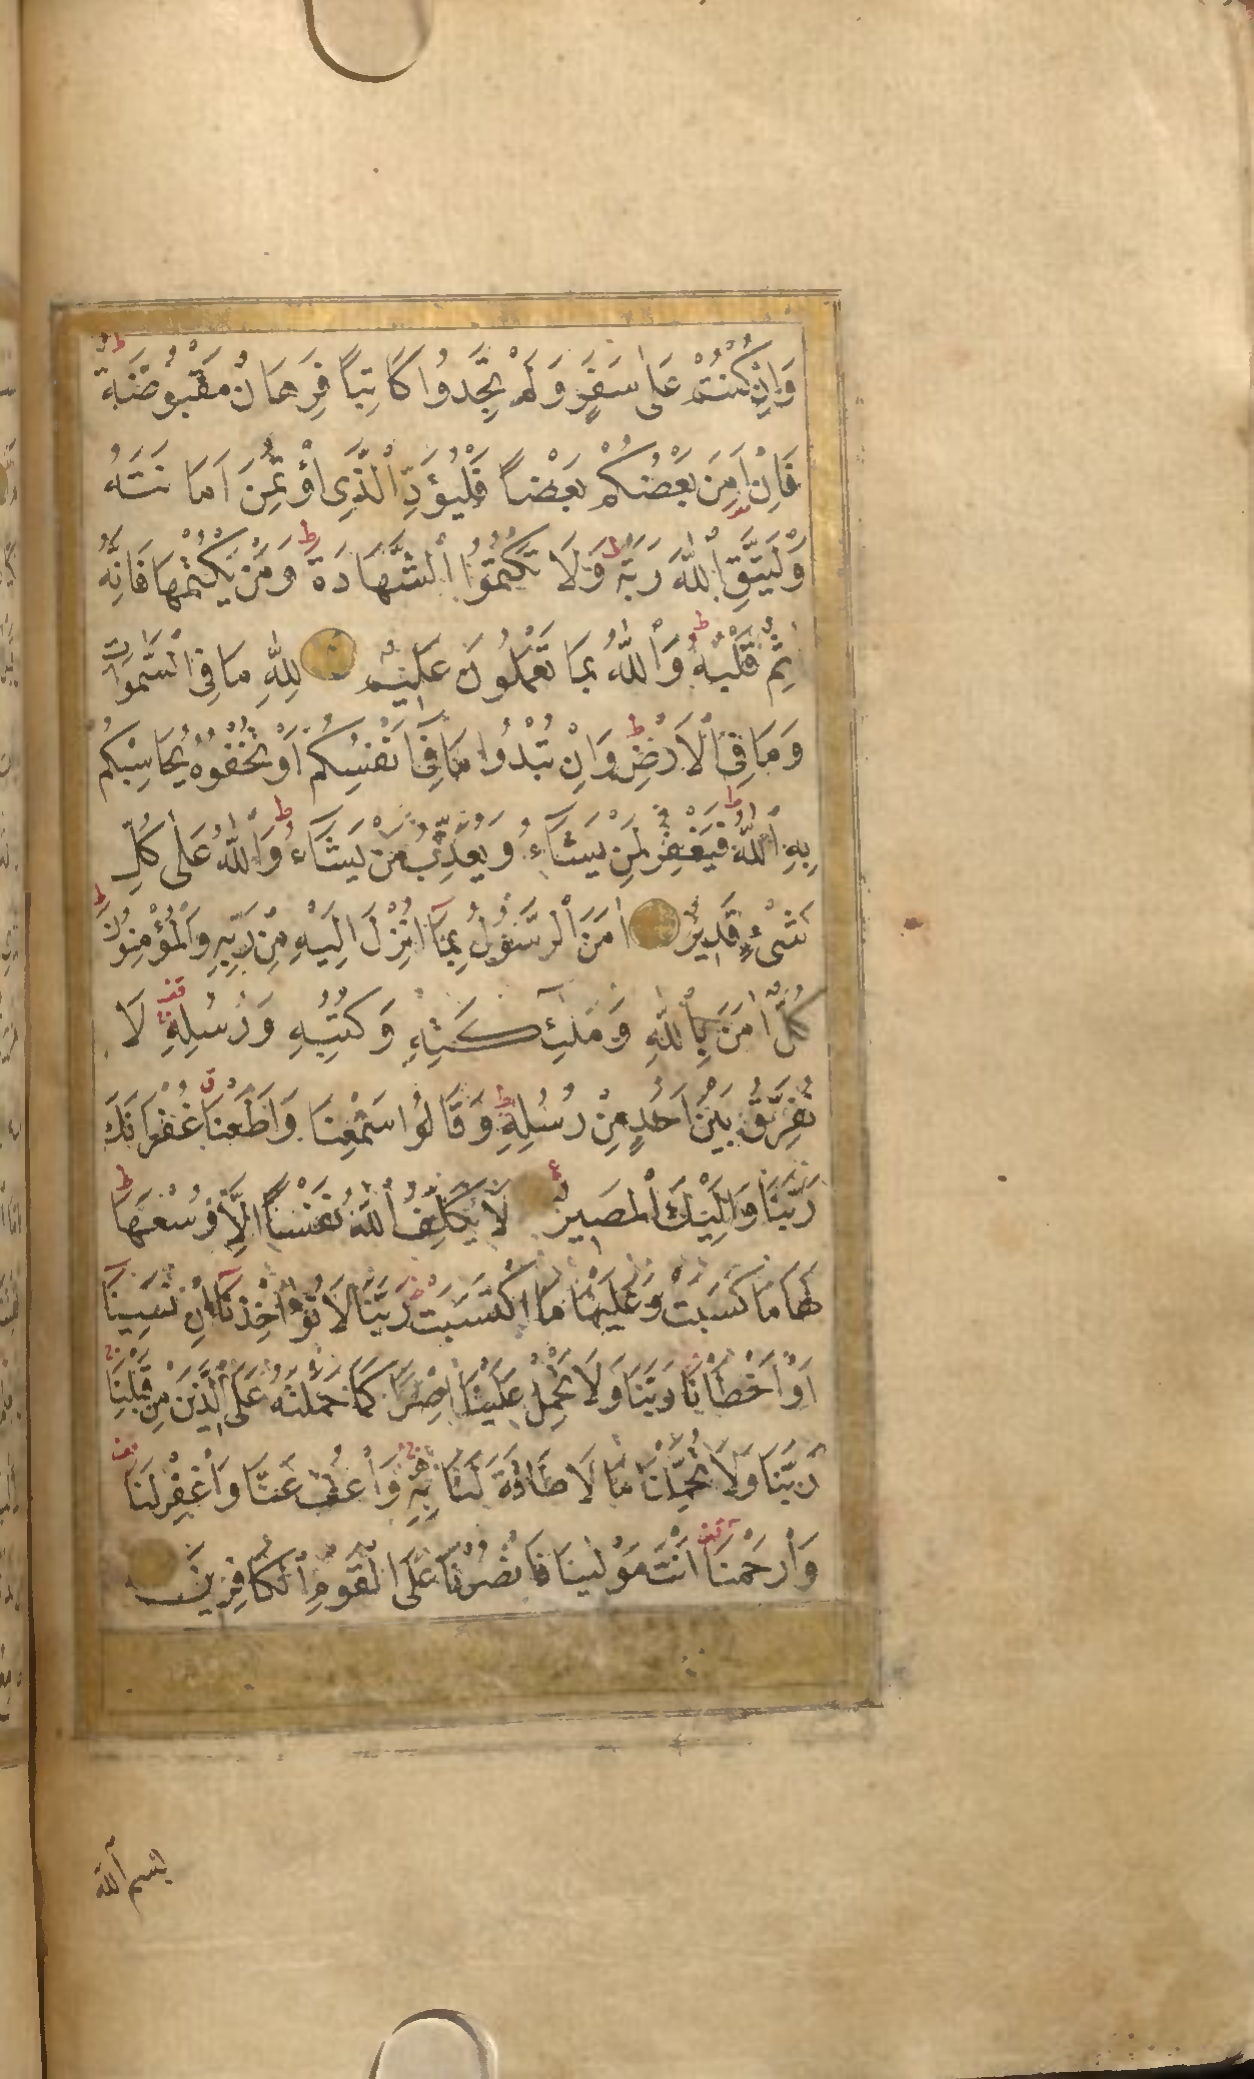 وَاِنْ كُنْتُمْ عَلٰى سَفَرٍ وَلَمْ تَجِدُوا كَاتِبًا فَرِهَانٌ مَقْبُوضَةٌ ط
فَاِنْ اَمِنَ بَعْضُكُمْ بَعْضًا فَلْيُؤَدِّ الَّذِى اؤْتُمِنَ اَمَانَتَهُ
وَلْيَتَّقِ اللّٰهَ رَبَّهُ ط وَلَا تَكْتُمُوا الشَّهَادَةَ ط وَمَنْ يَكْتُمْهَا فَاِنَّهُ
اٰثِمٌ قَلْبُهُ ط وَاللّٰهُ بِمَا تَعْمَلُونَ عَلِيمٌ لِلّٰهِ مَا فِى السَّمٰوَاتِ
وَمَا فِى الْاَرْضِ ط وَاِنْ تُبْدُوا مَا فِٓى اَنْفُسِكُمْ اَوْ تُخْفُوهُ يُحَاسِبْكُمْ
بِهِ اللّٰهُ ط فَيَغْفِرُ لِمَنْ يَشَاءُ وَيُعَذِّبُ مَنْ يَشَاءُ ط وَاللّٰهُ عَلٰى كُلِّ
شَىْءٍ قَدِيرٌ اٰمَنَ الرَّسُولُ بِمَٓا اُنْزِلَ اِلَيْهِ مِنْ رَبِّهِ وَالْمُؤْمِنُونَ ط
كُلٌّ اٰمَنَ بِاللّٰهِ وَمَلٰٓئِكَتِهِ وَكُتُبِهِ وَرُسُلِهِ قف لَا
نُفَرِّقُ بَيْنَ اَحَدٍ مِنْ رُسُلِهِ ط وَقَالُوا سَمِعْنَا وَاَطَعْنَا ق غُفْرَانَكَ
رَبَّنَا وَاِلَيْكَ الْمَصِيرُ لَا يُكَلِّفُ اللّٰهُ نَفْسًا اِلَّا وُسْعَهَا ط
لَهَا مَا كَسَبَتْ وَعَلَيْهَا مَا اكْتَسَبَتْ ط رَبَّنَا لَا تُؤَاخِذْنَٓا اِنْ نَسِينَٓا
اَوْ اَخْطَاْنَا رَبَّنَا وَلَا تَحْمِلْ عَلَيْنَا اِصْرًا كَمَا حَمَلْتَهُ عَلَى الَّذِينَ مِنْ قَبْلِنَا
رَبَّنَا وَلَا تُحَمِّلْنَا مَا لَا طَاقَةَ لَنَا بِهِ وَاعْفُ عَنَّا وَاغْفِرْ لَنَا قف
وَارْحَمْنَا قف اَنْتَ مَوْلٰينَا فَانْصُرْنَا عَلَى الْقَوْمِ الْكَافِرِينَ
بسم الله